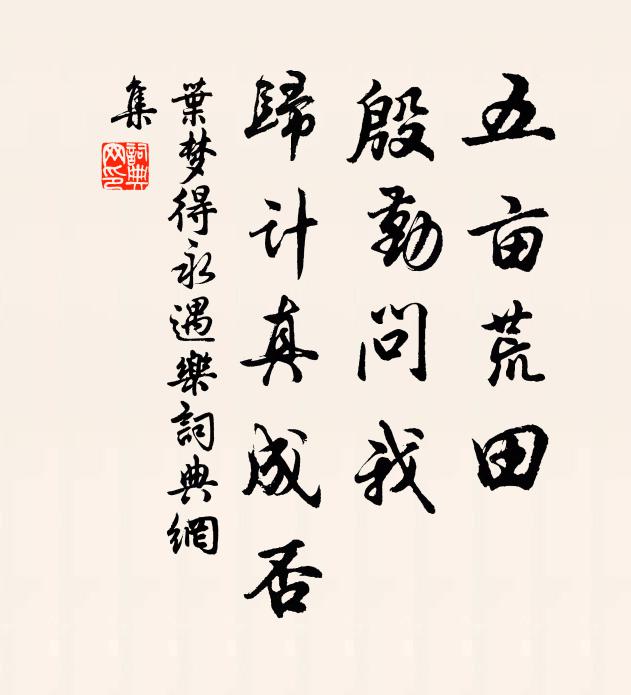 五亩荒田
殷勤問我
歸计真成否
葉梦得永遇樂詞典網
集
詞典網印